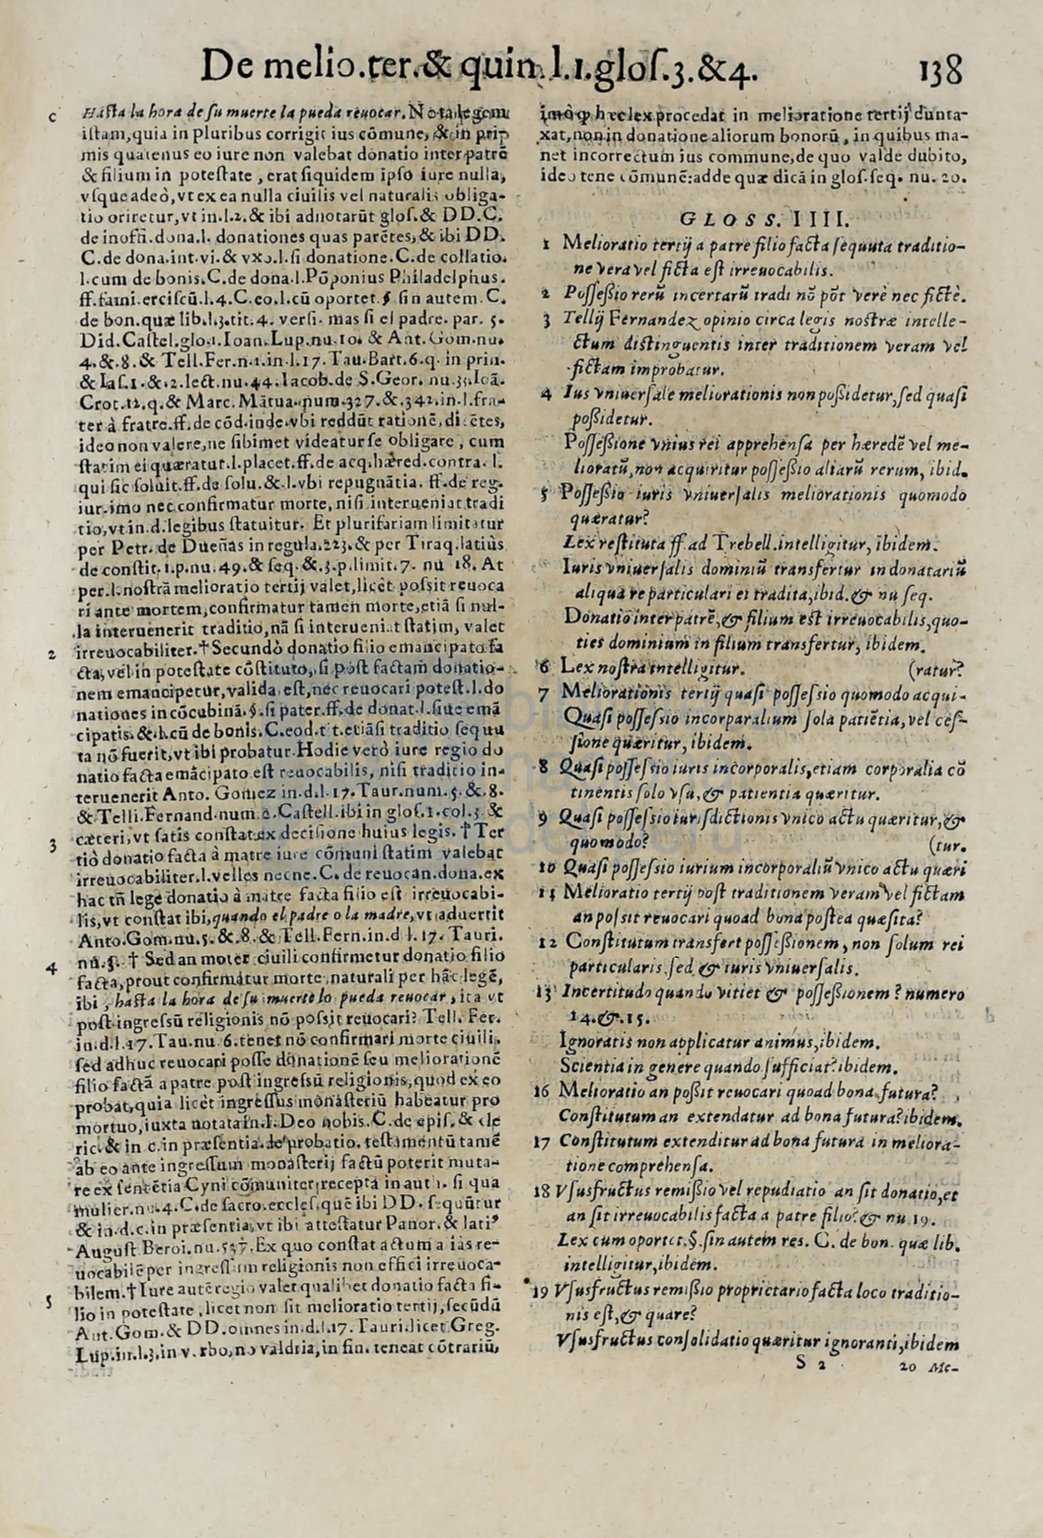 De melio.ter.& quin.l.1.gloſ.3.&4. 138
c Haſta la hora de ſu muerte la pueda reuocar. Nota legem
iſtam,quia in pluribus corrigit ius cōmune, & in pri-
mis quatenus eo iure non valebat donatio inter patrē
& filium in poteſtate , erat ſiquidem ipſo iure nulla,
vſque adeò,vt ex ea nulla ciuilis vel naturalis obliga-
tio oriretur,vt in.l.2.& ibi adnotarūt gloſ.& DD.C.
de inoffi.dona.l. donationes quas parētes,& ibi DD.
C.de dona.int.vi.& vxo.l.ſi donatione.C.de collatio.
l.cum de bonis.C.de dona.l.Pōponius Philadelphus.
ff.fami.erciſcū.l.4.C.eo.l.cū oportet.§ ſin autem.C.
de bon.quæ lib.l.3.tit.4. verſi. mas ſi el padre. par. 5.
Did.Caſtel.glo.1.Ioan.Lup.nu.10. & Ant.Gom.nu.
4.&.8.& Tell.Fer.n.1.in.l.17.Tau.Bart.6.q. in prin.
& Iaſ.1.&.2.lect.nu.44.Iacob.de S.Geor. nu.35.Ioā.
Crot.12.q.& Marc. Mātua.num.327.&.342.in.l.fra-
ter à fratre.ff.de cōd.inde.vbi reddūt rationē,dicētes,
ideo non valere,ne ſibimet videatur ſe obligare , cum
ſtatim ei quæratur.l.placet.ff.de acq.hæred.contra. l.
qui ſic ſoluit.ff.de ſolu.&.l.vbi repugnātia. ff.de reg.
iur.imo nec confirmatur morte, niſi interueniat tradi
tio,vt in.d.legibus ſtatuitur. Et plurifariam limitatur
per Petr. de Dueñas in regula.223.& per Tiraq.latiùs
de conſtit.1.p.nu.49.& ſeq.&.3.p.limit.7. nu 18. At
per.l.noſtrā melioratio tertij valet,licèt poſsit reuoca
ri ante mortem,confirmatur tamen morte,etiā ſi nul-
la interuenerit traditio,nā ſi interueniat ſtatim, valet
2 irreuocabiliter.†Secundò donatio filio emancipato fa
cta, vel in poteſtate cōſtituto, ſi poſt factam donatio-
nem emancipetur,valida eſt,nec reuocari poteſt.l.do
nationes in cōcubinā.§.ſi pater.ff.de donat.l.ſiue emā
cipatis.&.l.cū de bonis.C.eod.t t.etiāſi traditio ſequu
ta nō fuerit,vt ibi probatur.Hodie verò iure regio do
natio facta emācipato eſt reuocabilis, niſi traditio in-
teruenerit Anto. Gomez in.d.l.17.Taur.num.5.&.8.
& Telli.Fernand.num.2.Caſtell.ibi in gloſ.1.col.3 &
3 cæteri,vt ſatis conſtat ex deciſione huius legis. †Ter
tiò donatio facta à matre iure cōmuni ſtatim valebat
irreuocabiliter.l.velles necne.C.de reuocan.dona.ex
hac tñ lege donatio à matre facta filio eſt irreuocabi-
lis,vt conſtat ibi,quando el padre o la madre,vt aduertit
Anto.Gom.nu.5.&.8.& Tell.Fern.in.d l.17. Tauri.
4 nu.5. † Sed an morte ciuili confirmetur donatio filio
facta,prout confirmatur morte naturali per hāc legē,
ibi , haſta la hora de ſu muerte lo pueda reuocar , ita vt
poſt ingreſsū religionis nō poſsit reuocari? Tell. Fer.
in.d.l.17.Tau.nu.6.tenet nō confirmari morte ciuili,
ſed adhuc reuocari poſſe donationē ſeu meliorationē
filio factā a patre poſt ingreſsū religionis,quod ex eo
probat,quia licèt ingreſſus monaſteriū habeatur pro
mortuo,iuxta notata in.l.Deo nobis.C.de epiſ.& cle
ric.& in c.in præſentia.de probatio.teſtamentū tamē
ab eo ante ingreſſum monaſterij factū poterit muta-
re ex ſentētia Cyni cōmuniter recepta in aut 1. ſi qua
mulier.nu.4.C.de ſacro.eccleſ.quē ibi DD. ſequūtur
& in.d.c.in præſentia,vt ibi atteſtatur Panor.& latiꝰ
Auguſt.Beroi.nu.557.Ex quo conſtat actum alias re-
uocabilē per ingreſſum religionis non effici irreuoca-
5 bilem.†Iure autē regio valet qualibet donatio facta fi-
lio in poteſtate , licet non ſit melioratio tertij,ſecūdū
Ant. Gom.& DD.omnes in.d.l.17. Tauri.licet Greg.
Lup.in.l.3.in v. rbo,no valdria,in fin. teneat cōtrariū,
hæc lex procedat in melioratione tertij dunta-
xat,non in donatione aliorum bonorū , in quibus ma-
net incorrectum ius commune,de quo valde dubito,
ideo tene cōmunē:adde quæ dicā in gloſ.ſeq. nu.20.
GLOSS. IIII.
1 Melioratio tertij a patre filio facta ſequuta traditio-
ne vera vel ficta eſt irreuocabilis.
2 Poſſeßio rerū incertarū tradi nō pōt verè nec fictè.
3 Tellij Fernandez opinio circa legis noſtræ intelle-
ctum diſtinguentis inter traditionem veram vel
fictam improbatur.
4 Ius vniuerſale meliorationis non poßidetur,ſed quaſi
poßidetur.
Poſſeßione vnius rei apprehenſa per hæredē vel me-
lioratū,non acquiritur poſſeßio aliarū rerum, ibid.
5 Poſſeßio iuris vniuerſalis meliorationis quomodo
quæratur?
Lex reſtituta ff.ad Trebell.intelligitur, ibidem.
Iuris vniuerſalis dominiū transfertur in donatariū
aliqua re particulari ei tradita,ibid.& nu ſeq.
Donatio inter patrē,& filium eſt irreuocabilis,quo-
ties dominium in filium transfertur, ibidem.
6 Lex noſtra intelligitur. (ratur?
7 Meliorationis tertij quaſi poſſeſsio quomodo acqui-
Quaſi poſſeſsio incorparalium ſola patiētia, vel ceſ-
ſione quæritur, ibidem.
8 Quaſi poſſeſsio iuris incorporalis,etiam corporalia cō
tinentis ſolo vſu,& patientia quæritur.
9 Quaſi poſſeſsio iuriſdictionis vnico actu quæritur,&
quomodo? (tur.
10 Quaſi poſſeſsio iurium incorporaliū vnico actu quæri
11 Melioratio tertij poſt traditionem veram vel fictam
an poſsit reuocari quoad bona poſtea quæſita?
12 Conſtitutum transfert poſſeßionem, non ſolum rei
particularis,ſed & iuris vniuerſalis.
13 Incertitudo quando vitiet & poſſeßionem? numero
14.&.15.
Ignoratis non applicatur animus,ibidem.
Scientia in genere quando ſufficiat? ibidem.
16 Melioratio an poßit reuocari quoad bona futura?
Conſtitutum an extendatur ad bona futura?ibidem.
17 Conſtitutum extenditur ad bona futura in meliora-
tione comprehenſa.
18 Vſusfructus remißio vel repudiatio an ſit donatio,et
an ſit irreuocabilis facta a patre filio? & nu 19.
Lex cum oportet.§.ſin autem res. C. de bon. quæ lib.
intelligitur,ibidem.
19 Vſusfructus remißio proprietario facta loco traditio-
nis eſt,& quare?
Vſusfructus conſolidatio quæritur ignoranti,ibidem
S 2 20 Me-